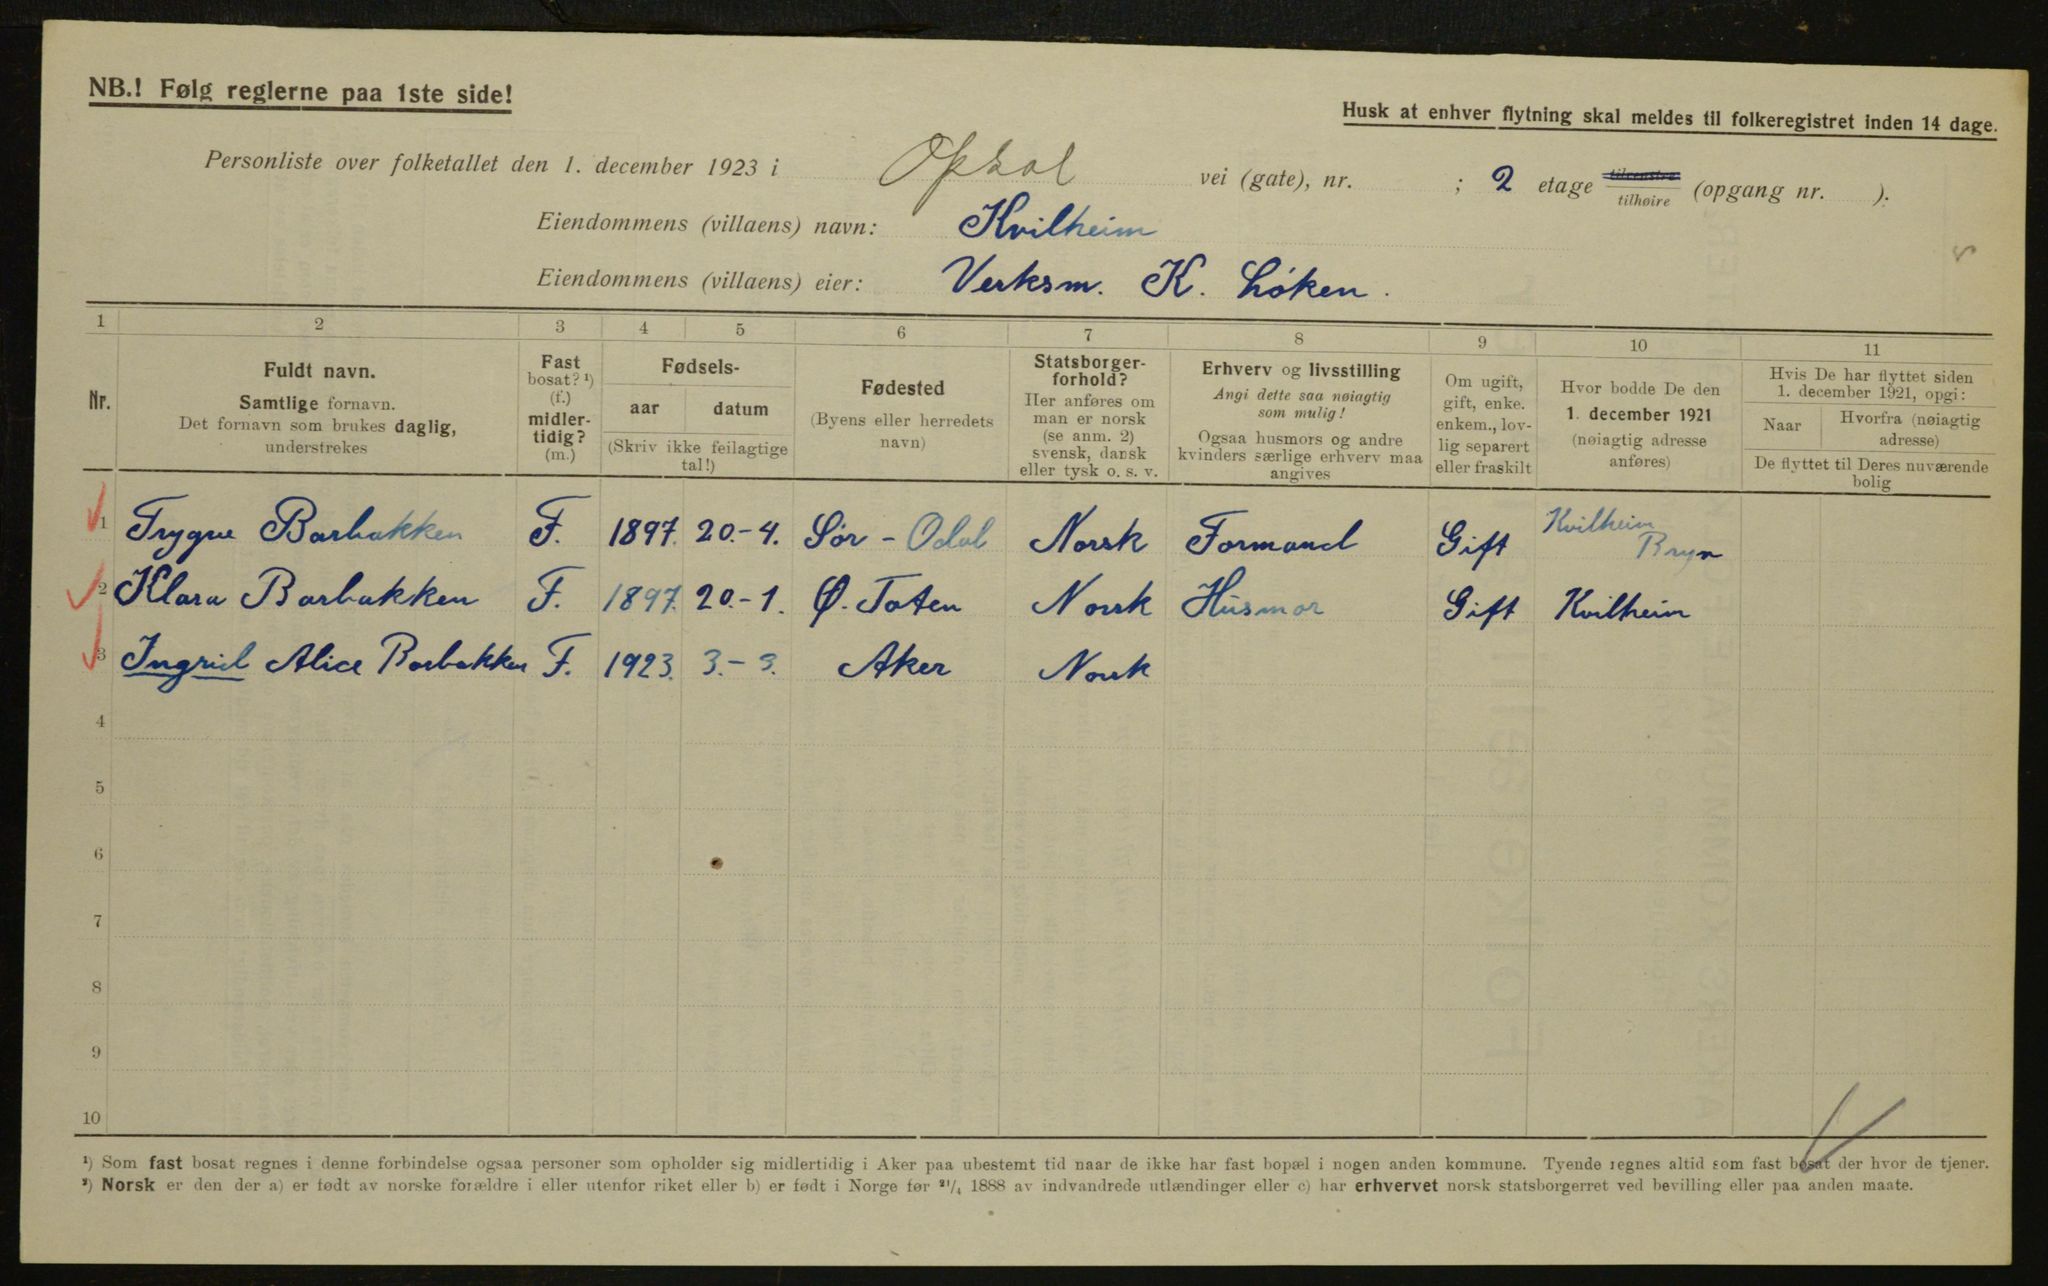 NB.! Følg reglerne paa 1ste side!
Husk at enhver flytning skal meldes til folkeregistret inden 14 dage.
Personliste over folketallet den 1. december 1923 i Opsal vei (gate), nr. ; 2 etage tilvenstre/tilhøire (opgang nr. ).
Eiendommens (villaens) navn: Kvilheim
Eiendommens (villaens) eier: Verksm. K. Løken.
1 2 3 4 5 6 7 8 9 10 11
Nr.
Fuldt navn.
Samtlige fornavn.
Det fornavn som brukes daglig,
understrekes
Fast
bosat? ¹)
(f.)
midler-
tidig?
(m.)
Fødsels-
aar datum
(Skriv ikke feilagtige
tal!)
Fødested
(Byens eller herredets
navn)
Statsborger-
forhold?
Her anføres om
man er norsk
(se anm. 2)
svensk, dansk
eller tysk o. s. v.
Erhverv og livsstilling
Angi dette saa nøiagtig
som mulig!
Ogsaa husmors og andre
kvinders særlige erhverv maa
angives
Om ugift,
gift, enke.
enkem., lov-
lig separert
eller fraskilt
Hvor bodde De den
1. december 1921
(nøiagtig adresse
anføres)
Hvis De har flyttet siden
1. december 1921, opgi:
Naar
Hvorfra (nøiagtig
adresse)
De flyttet til Deres nuværende
bolig
1 Trygve Barbakken F. 1897. 20.-4. Sør-Odal Norsk Formand Gift Kvilheim
Bryn
2 Klara Barbakken F. 1897. 20.-1. Ø. Toten Norsk Husmor Gift Kvilheim
3 Ingrid Alice Barbakken F. 1923. 3.-3. Aker Norsk
4
5
6
7
8
9
10
¹) Som fast bosat regnes i denne forbindelse ogsaa personer som opholder sig midlertidig i Aker paa ubestemt tid naar de ikke har fast bopæl i nogen anden kommune. Tyende regnes altid som fast bosat der hvor de tjener.
²) Norsk er den der a) er født av norske forældre i eller utenfor riket eller b) er født i Norge før ²¹/₄ 1888 av indvandrede utlændinger eller c) har erhvervet norsk statsborgerret ved bevilling eller paa anden maate.